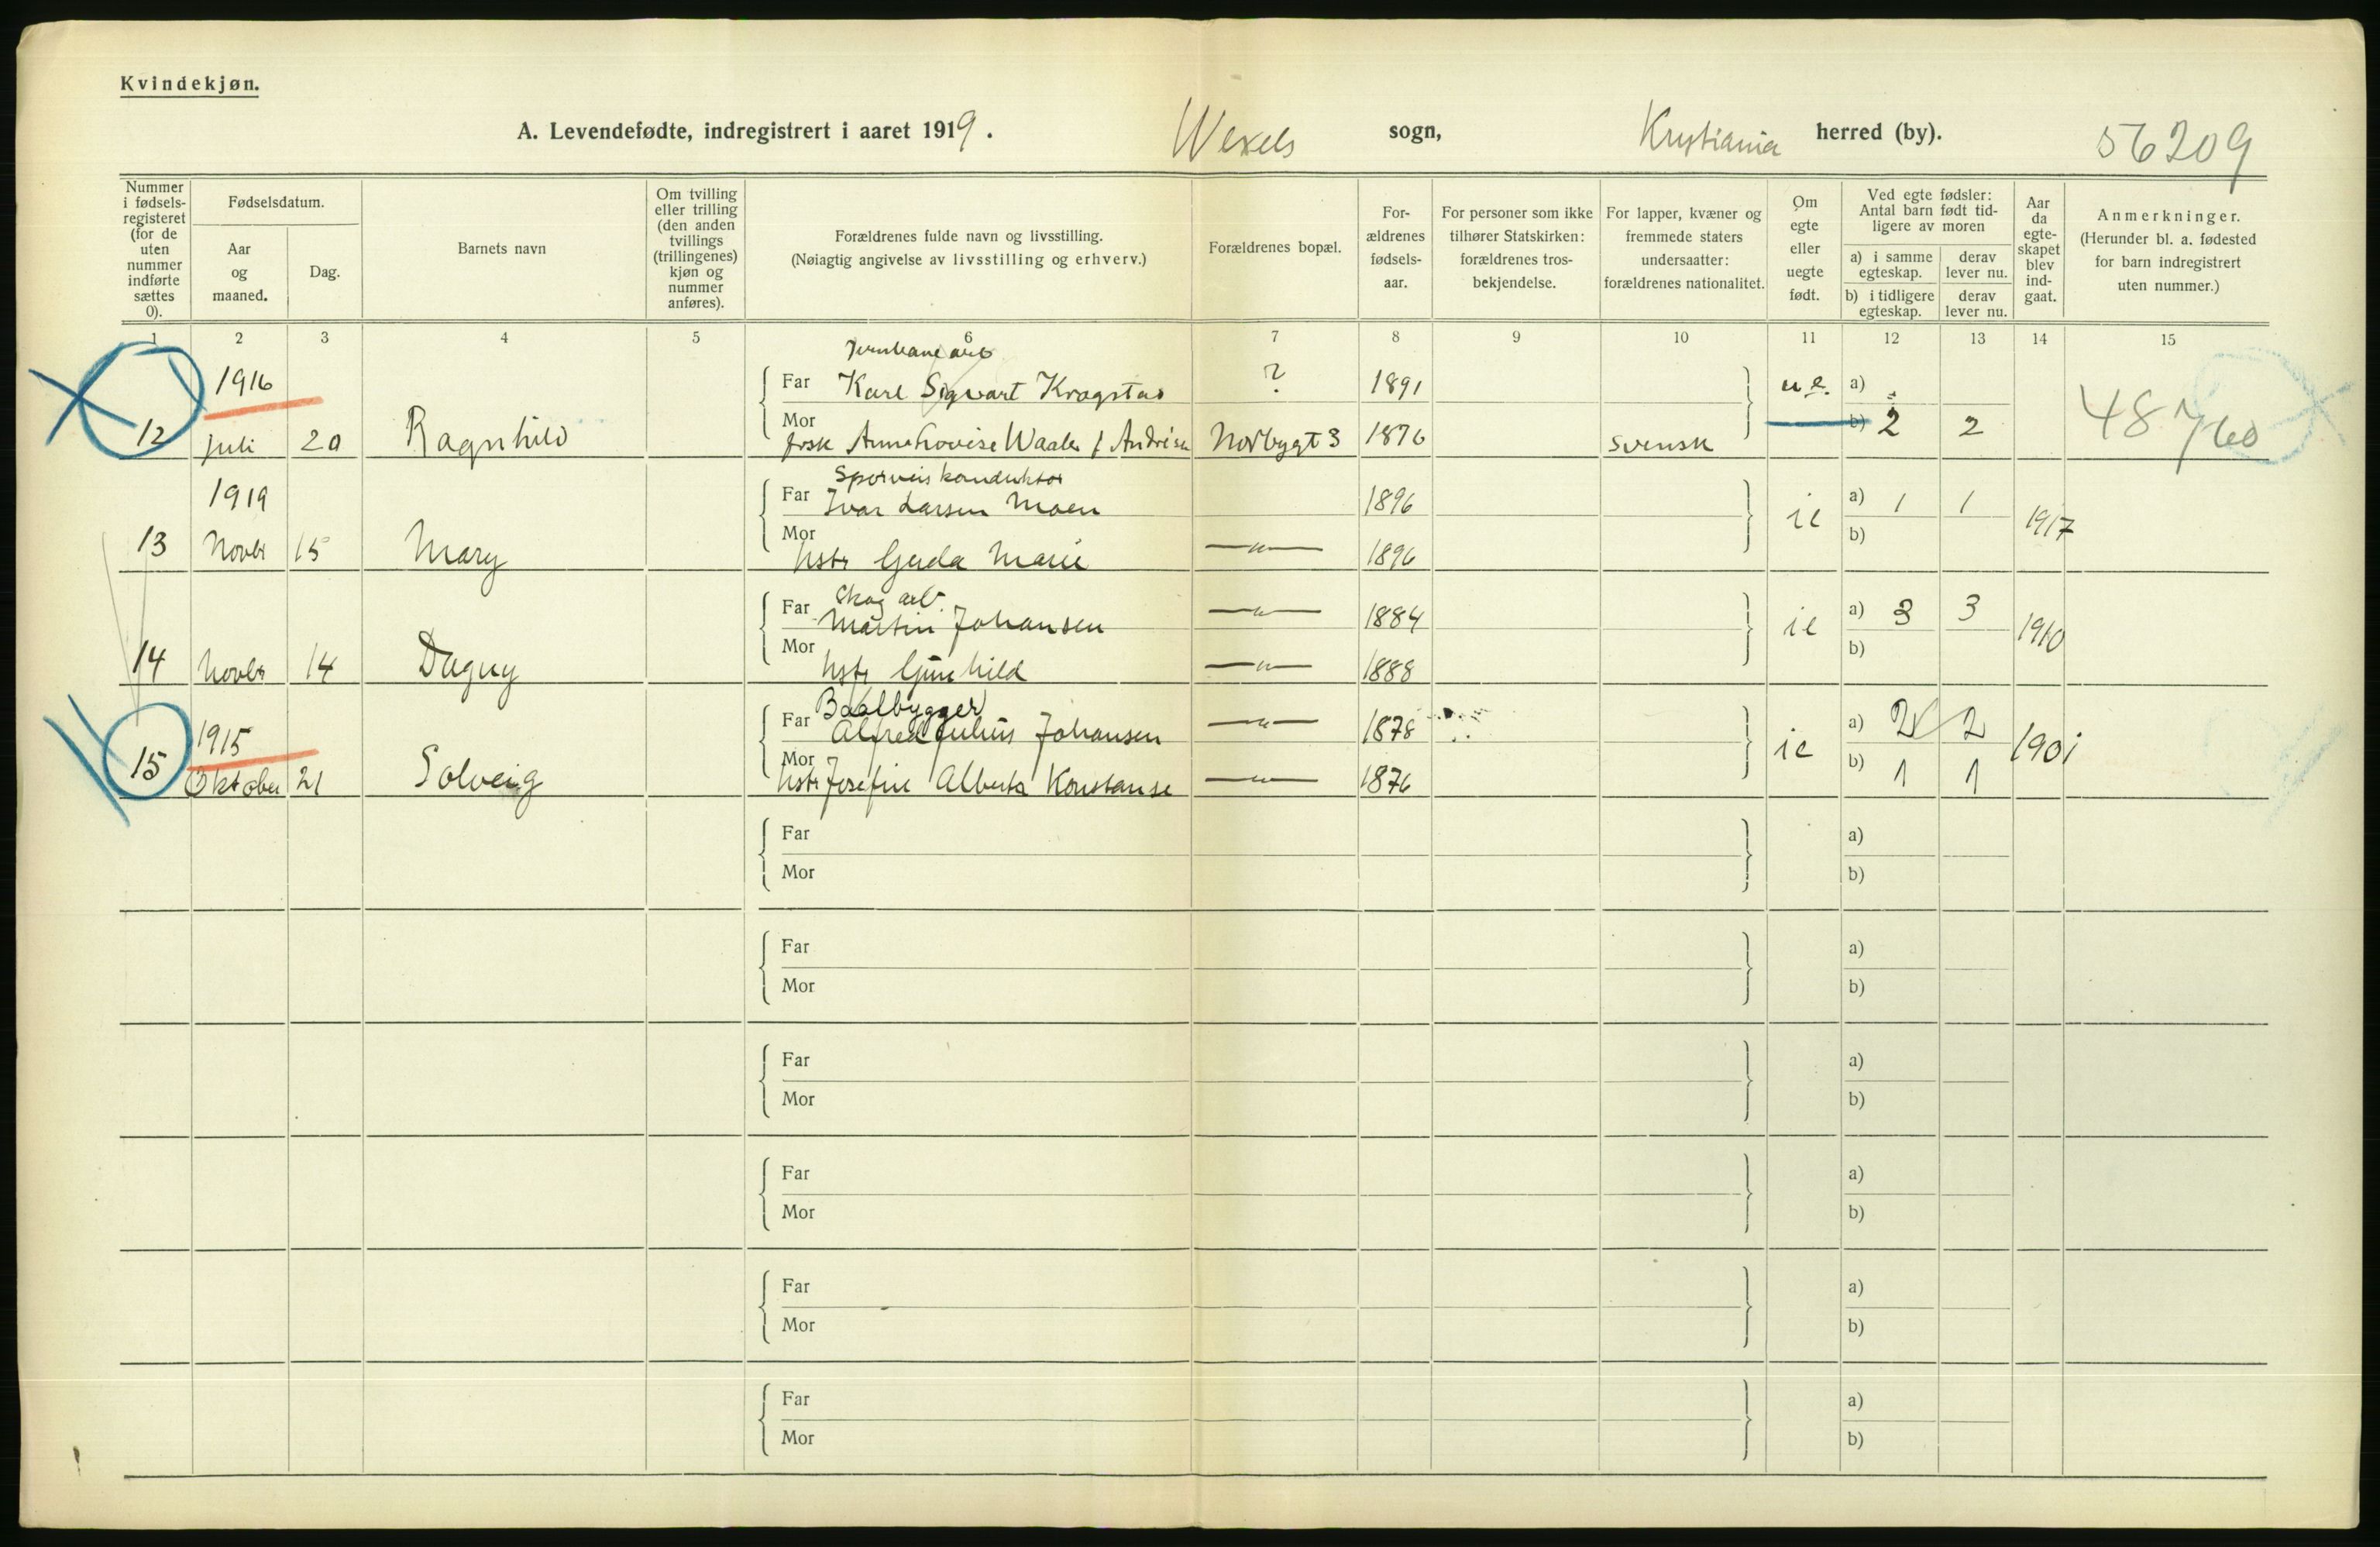 Kvindekjøn.
A. Levendefødte, indregistrert i aaret 1919. Wexels sogn, Kristiania herred (by). 56209
Nummer i fødselsregisteret (for de uten nummer indførte sættes 0).
Fødselsdatum.
Aar og maaned.
Dag.
Barnets navn
Om tvilling eller trilling (den anden tvillings (trillingenes) kjøn og nummer anføres).
Forældrenes fulde navn og livsstilling.
(Nøiagtig angivelse av livsstilling og erhverv.)
Forældrenes bopæl.
Forældrenes fødselsaar.
For personer som ikke tilhører Statskirken: forældrenes trosbekjendelse.
For lapper, kvæner og fremmede staters undersaatter: forældrenes nationalitet.
Om egte eller uegte født.
Ved egte fødsler: Antal barn født tidligere av moren
a) i samme egteskap. derav lever nu.
b) i tidligere egteskap. derav lever nu.
Aar da egteskapet blev indgaat.
Anmerkninger.
(Herunder bl. a. fødested for barn indregistrert uten nummer.)
1 2 3 4 5 6 7 8 9 10 11 12 13 14 15
Jernbanearb
1916 Far Karl Sigvart Krogstad ? 1891 u.e. a)
12 Juli 20 Ragnhild Mor frsk Anna Lovise Waaler f Andrésen Norbygt 3 1876 svensk b) 2 2 48760
Sporveiskonduktør
1919 Far Ivar Larsen Moen 1896 a) 1 1
13 Novbr 15 Mary Mor hstr Gerda Marie —"— 1896 ie b) 1917
Skog arb.
Far Martin Johansen —"— 1884 a) 3 3
14 Novbr 14 Dagny Mor hstr Gunhild —"— 1888 ie b) 1910
Baatbygger
1915 Far Alfred Julius Johansen —"— 1878 a) 2 2
15 Oktober 21 Solveig Mor hstr Josefine Alberta Konstanse —"— 1876 ie b) 1 1 1901
Far a)
Mor b)
Far a)
Mor b)
Far a)
Mor b)
Far a)
Mor b)
Far a)
Mor b)
Far a)
Mor b)